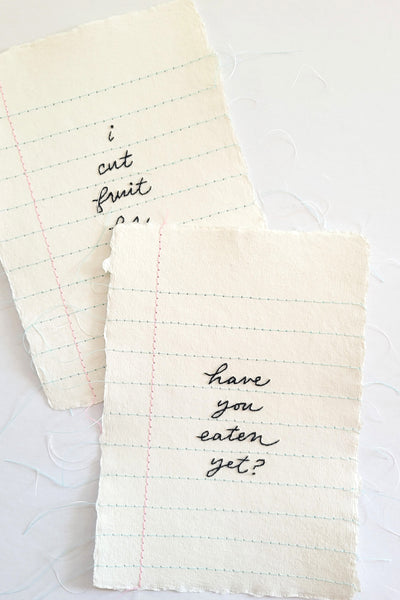 i
cut
fruit
have
you
eaten
yet?